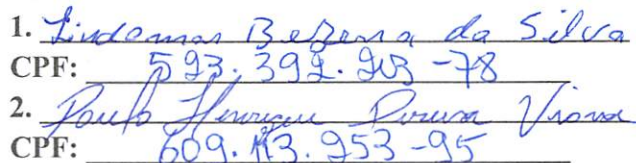 1. Lindomar Bezerra da Silva
CPF: 593.392.203-78
2. Paulo Henrique Viana
CPF: 609.113.953-95